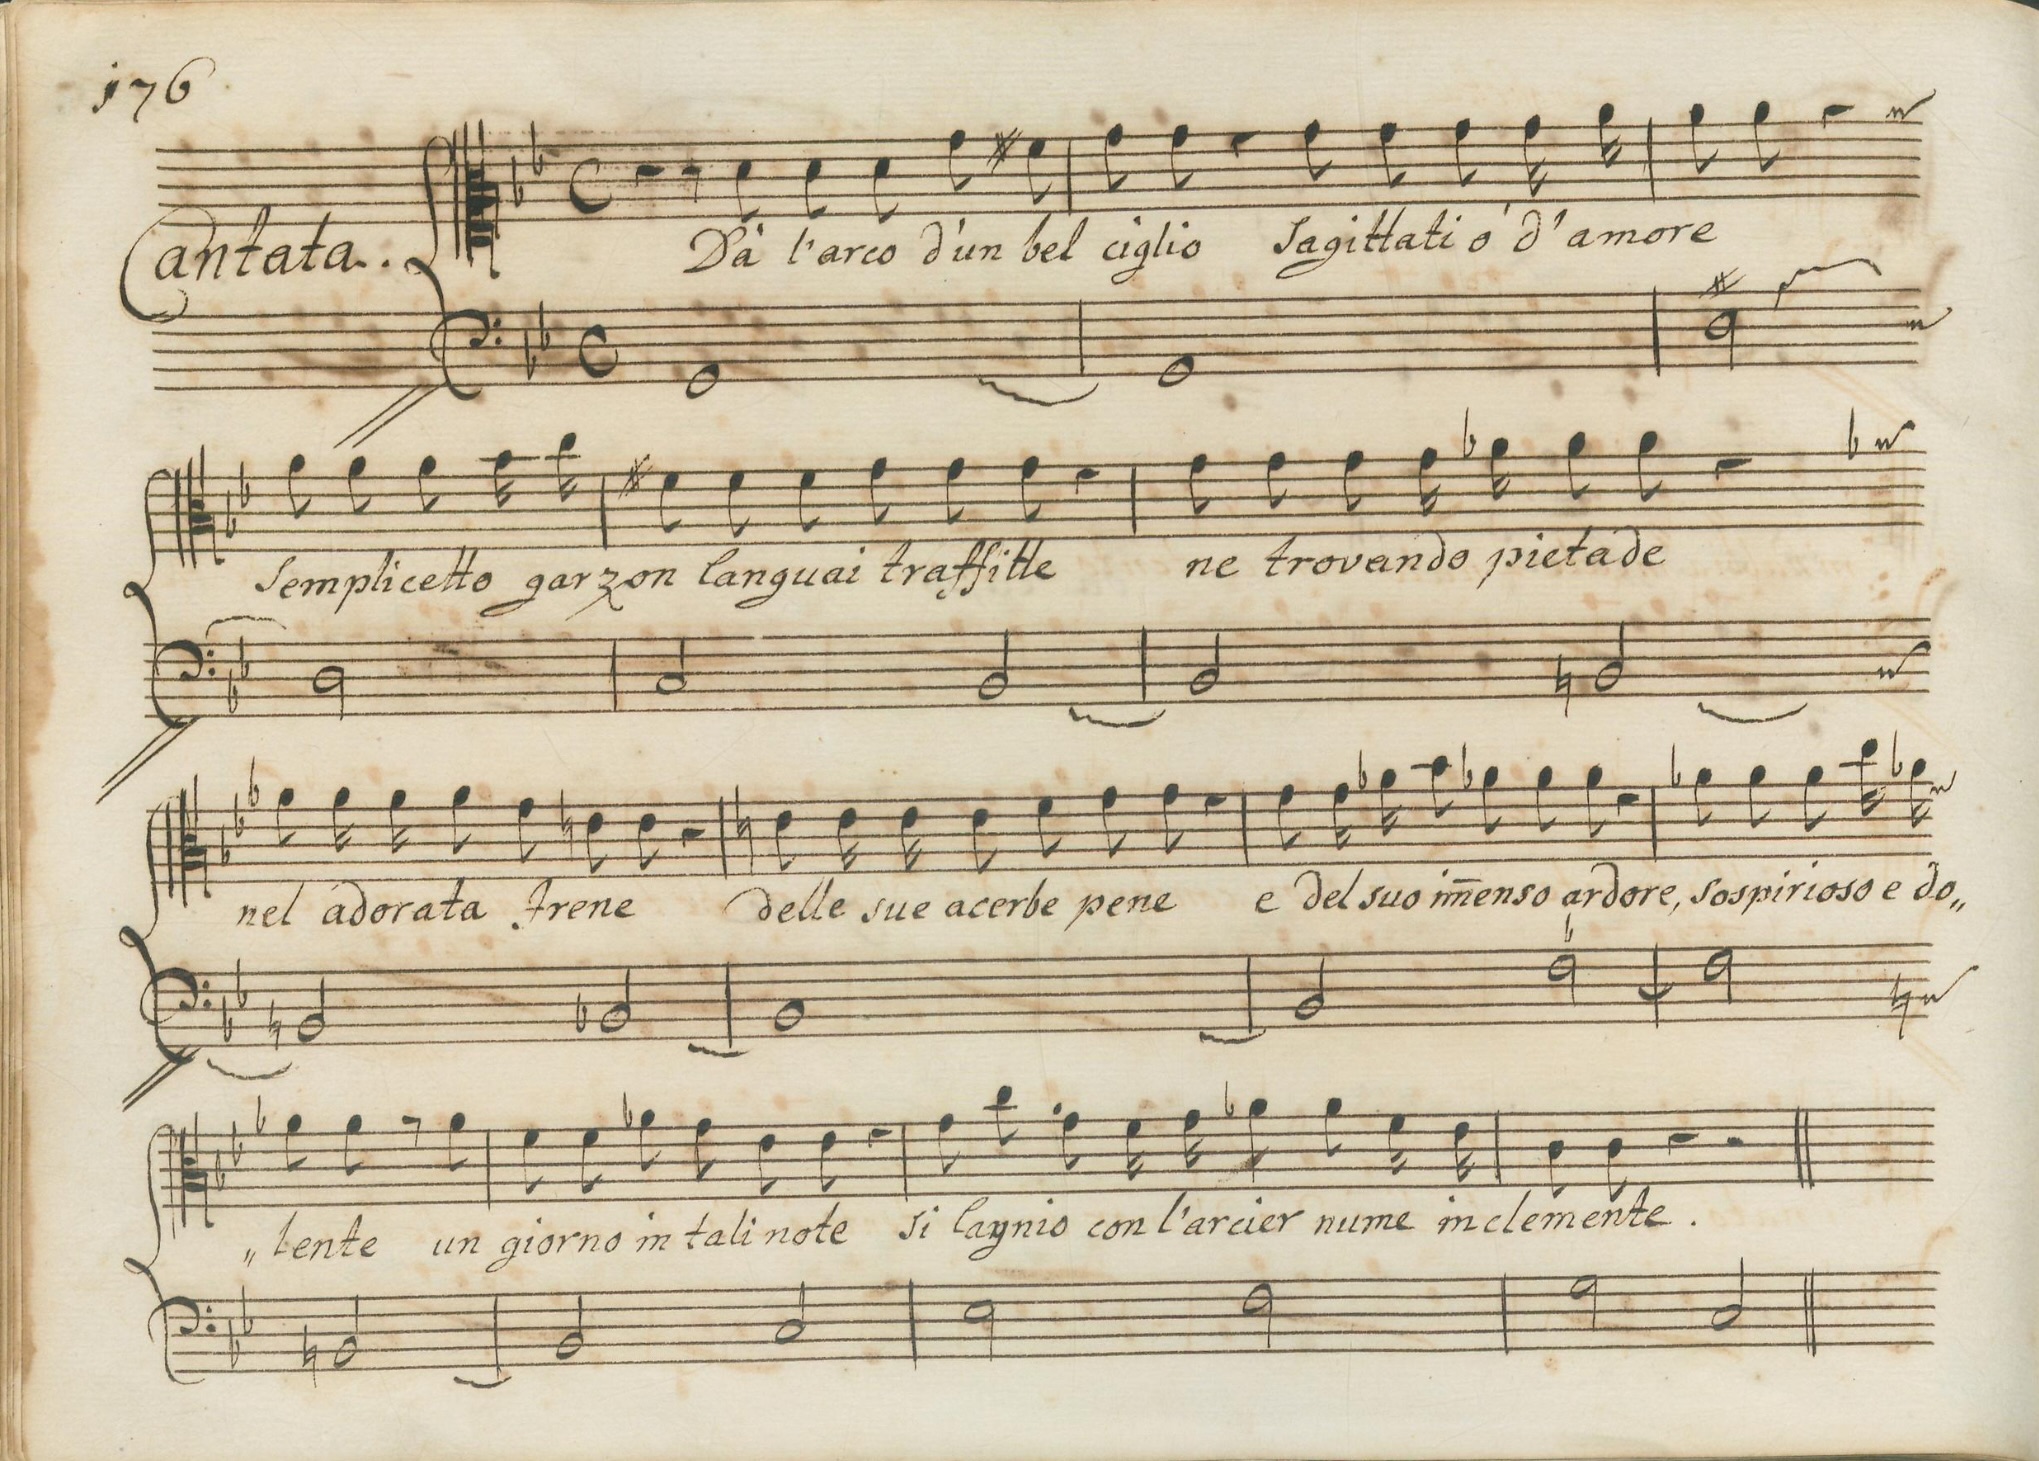 176
Cantata.
Dà l'arco d'un bel ciglio Sagittati ó d'amore
Semplicetto garzon languai traffitte ne trovando pietade
nel adorata Irene delle sue acerbe pene e del suo im̄enso ardore, sospirioso e do„
„lente un giorno in tali note si lagnio con l'arcier nume inclemente.